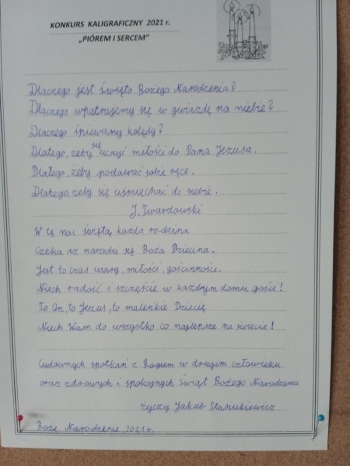 KONKURS KALIGRAFICZNY 2021 r.
„PIÓREM I SERCEM”
Dlaczego jest święto Bożego Narodzenia?
Dlaczego wpatrujemy się w gwiazdę na niebie?
Dlaczego śpiewamy kolędy?
Dlatego, żeby się uczyć miłości do Pana Jezusa.
Dlatego, żeby podawać sobie ręce.
Dlatego, żeby się uśmiechać do siebie.
J. Twardowski
W tę noc świętą, każda rodzina
Czeka aż narodzi się Boża Dziecina.
Jest to czas wiary, miłości, gościnności.
Niech radość i szczęście w każdym domu gości!
To On, to Jezus, to maleńkie Dziecię
Niech Wam da wszystko co najlepsze na świecie!
Cudownych spotkań z Bogiem w drugim człowieku
oraz zdrowych i spokojnych świąt Bożego Narodzenia
życzy Jakub Stankiewicz
Boże Narodzenie 2021 r.